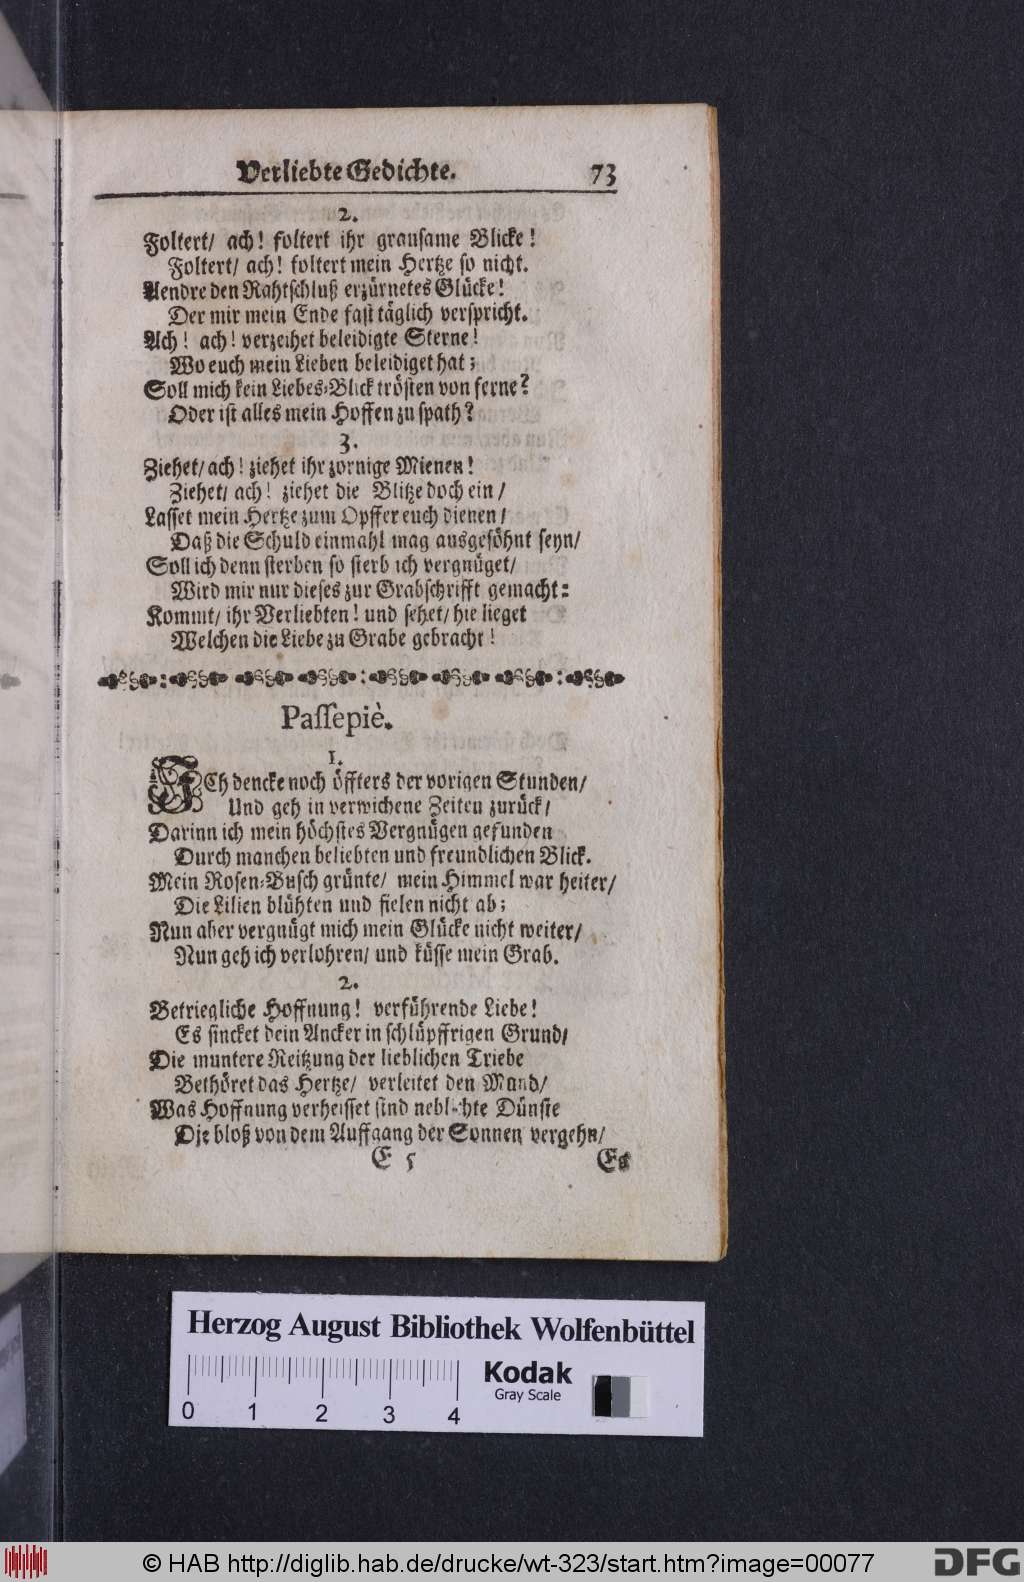 Verliebte Gedichte. 73
2.
Foltert/ ach! foltert ihr grausame Blicke!
Foltert/ ach! foltert mein Hertze so nicht.
Aendre den Rahtschluß erzürnetes Glücke!
Der mir mein Ende fast täglich verspricht.
Ach! ach! verzeihet beleidigte Sterne!
Wo euch mein Lieben beleidiget hat;
Soll mich kein Liebes-Blick trösten von ferne?
Oder ist alles mein Hoffen zu spath?
3.
Ziehet/ ach! ziehet ihr zornige Mienen!
Ziehet/ ach! ziehet die Blitze doch ein/
Lasset mein Hertze zum Opffer euch dienen/
Daß die Schuld einmahl mag ausgesöhnt seyn/
Soll ich denn sterben so sterb ich vergnüget/
Wird mir nur dieses zur Grabschrifft gemacht:
Kommt/ ihr Verliebten! und sehet/ hie lieget
Welchen die Liebe zu Grabe gebracht!
Passepiè.
1.
ICh dencke noch öffters der vorigen Stunden/
Und geh in verwichene Zeiten zurück/
Darinn ich mein höchstes Vergnügen gefunden
Durch manchen beliebten und freundlichen Blick.
Mein Rosen-Busch grünte/ mein Himmel war heiter/
Die Lilien blühten und fielen nicht ab;
Nun aber vergnügt mich mein Glücke nicht weiter/
Nun geh ich verlohren/ und küsse mein Grab.
2.
Betriegliche Hoffnung! verführende Liebe!
Es sincket dein Ancker in schlüpffrigen Grund/
Die muntere Reitzung der lieblichen Triebe
Bethöret das Hertze/ verleitet den Mund/
Was Hoffnung verheisset sind neblichte Dünste
Die bloß von dem Auffgang der Sonnen vergehn/
E 5 Es
Herzog August Bibliothek Wolfenbüttel
Kodak
Gray Scale
0 1 2 3 4
© HAB http://diglib.hab.de/drucke/wt-323/start.htm?image=00077
DFG